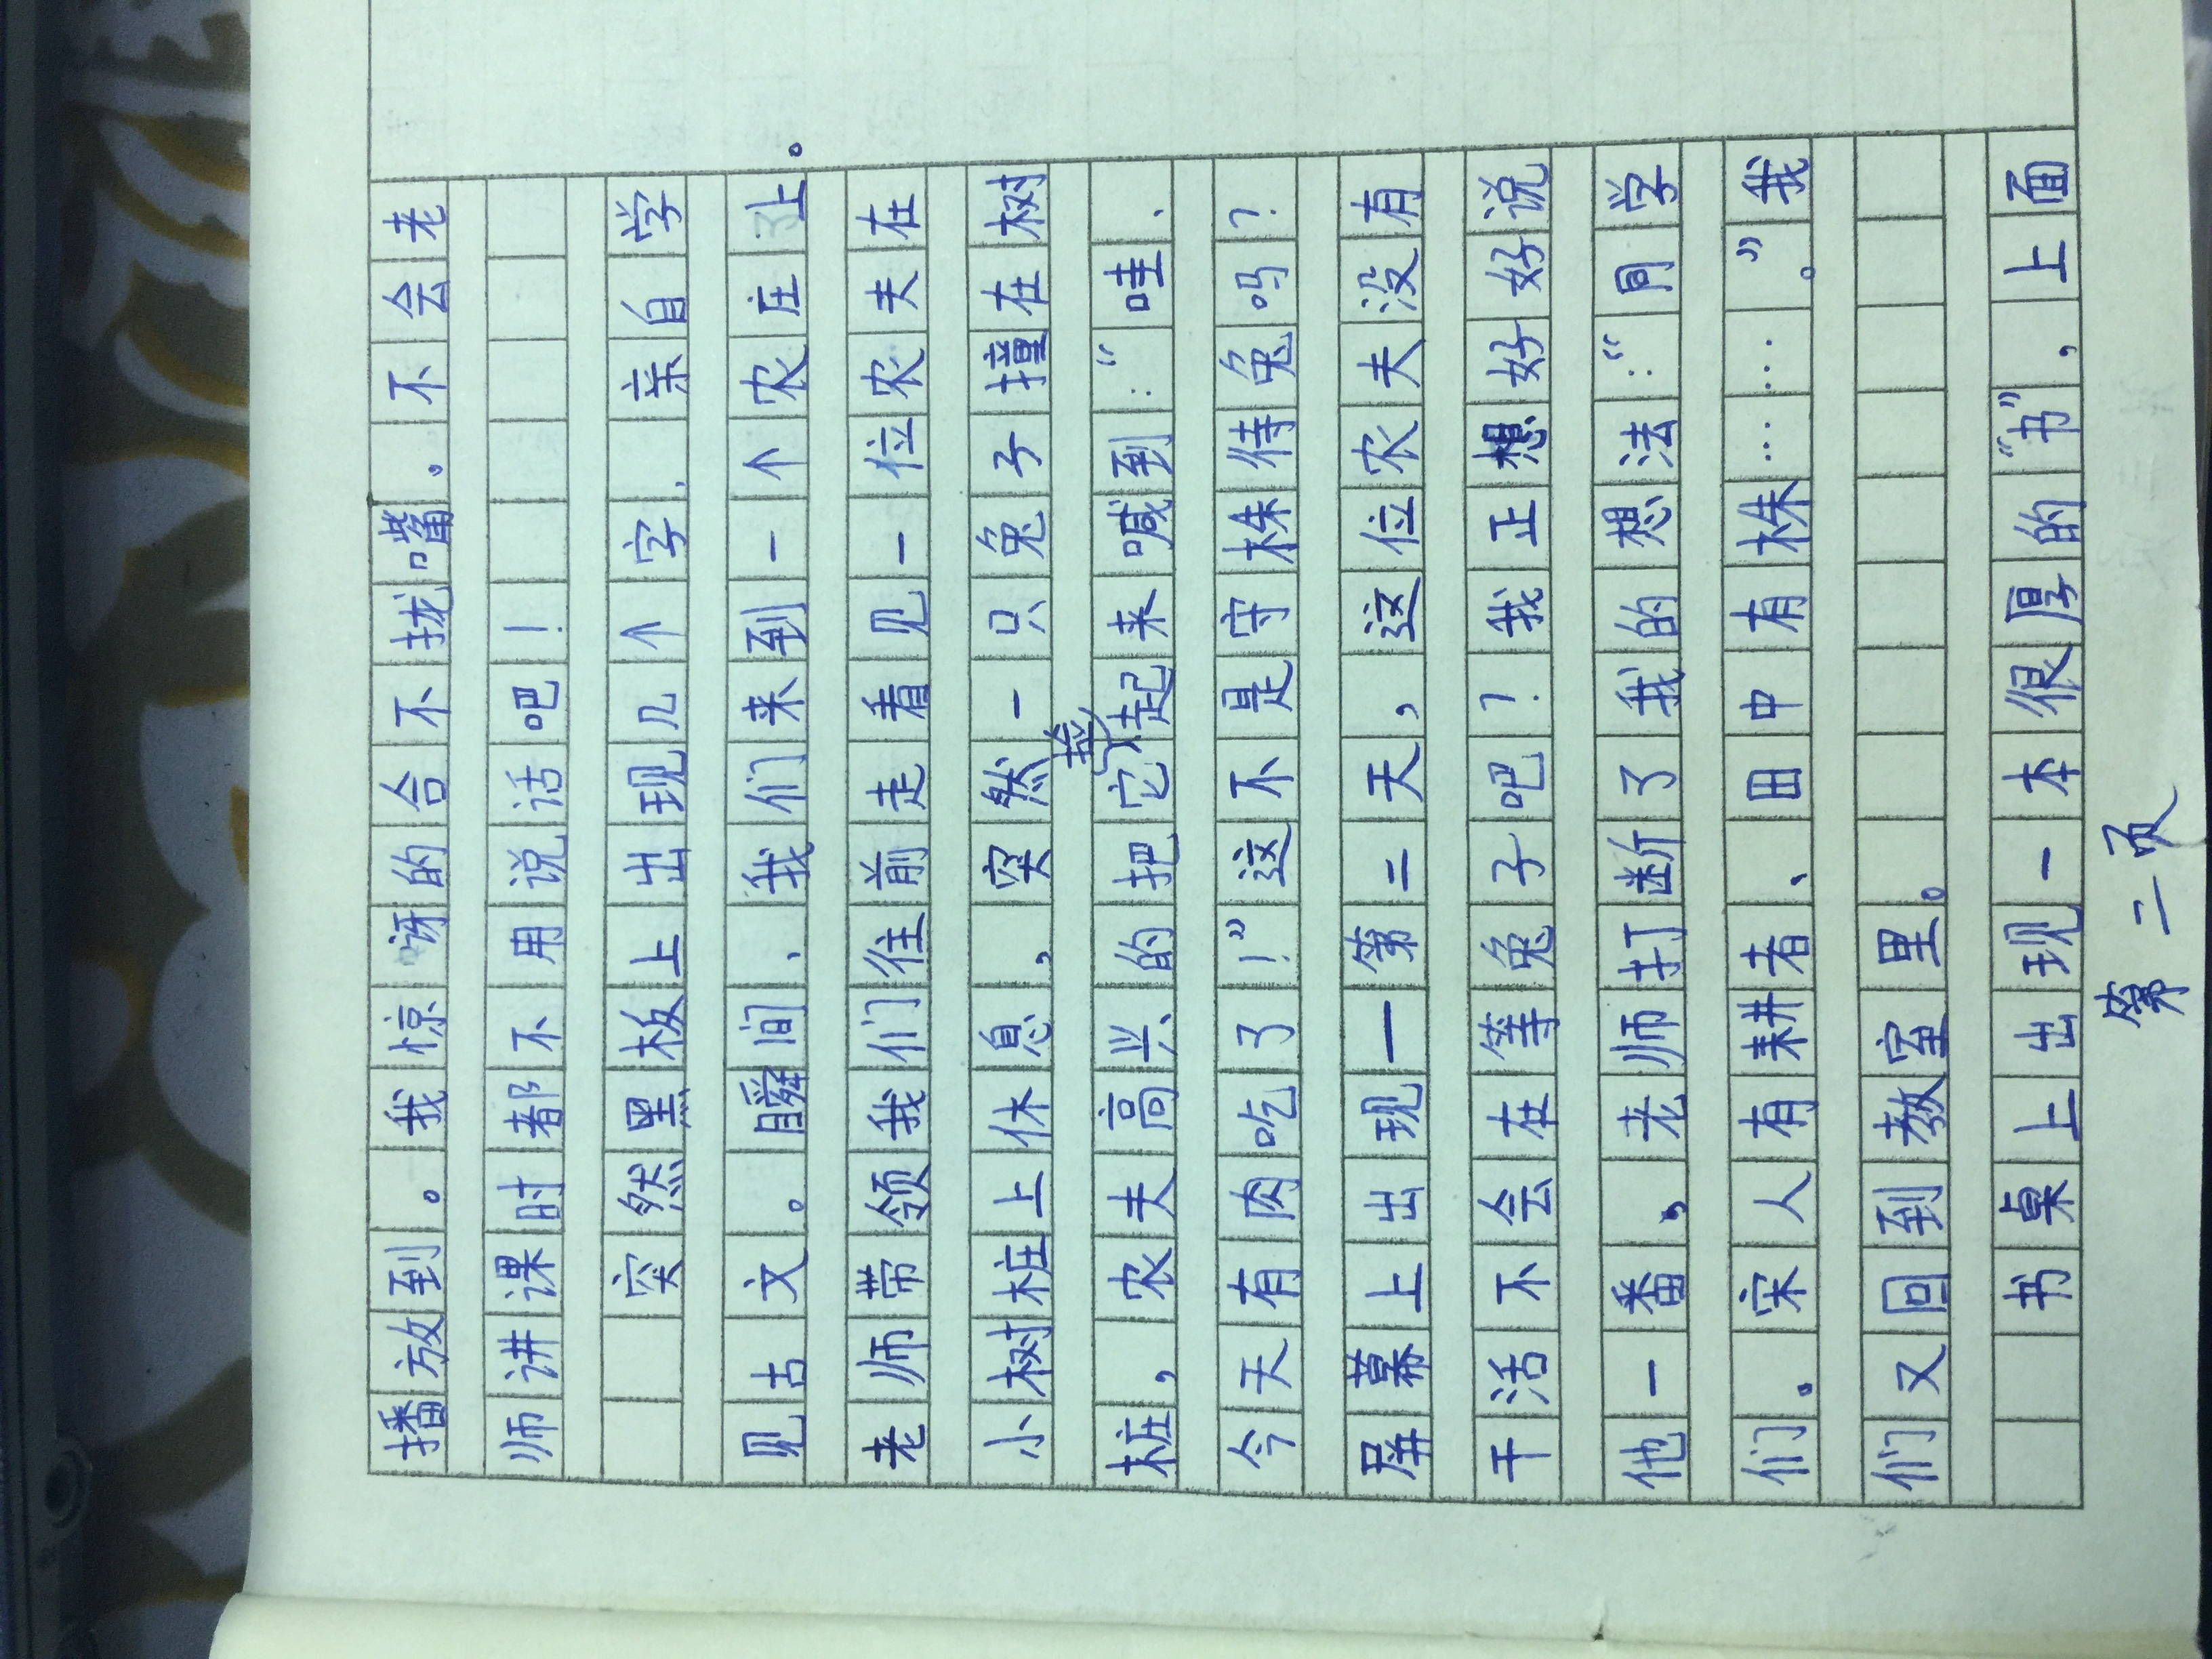 播放到。我惊讶的合不拢嘴。不会老
师讲课时都不用说话吧！
突然黑板上出现几个字，亲自学
见古文。瞬间，我们来到一个农庄上。
老师带领我们往前走看见一位农夫在
小树桩上休息，突然一只兔子撞在树
桩，农夫高兴的把它捡起来喊到：“哇，
今天有肉吃了！”这不是守株待兔吗？
屏幕上出现一第二天，这位农夫没有
干活不会在等兔子吧？我正想好好说
他一番，老师打断了我的想法：“同学
们。宋人有耕者、田中有株……。”我
们又回到教室里。
书桌上出现一本很厚的“书”，上面
第二页